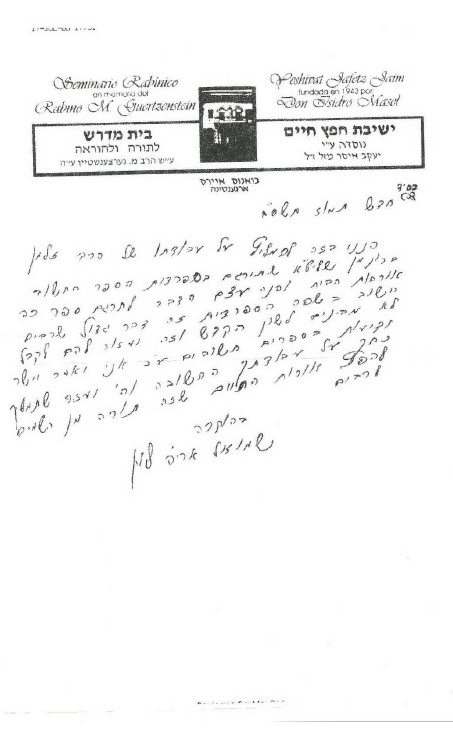 Seminario Rabínico
en memoria del
Rabino M. Guertzenstein
Yeshivat Jafetz Jaim
fundada en 1943 por
Don Isidro Masel
בית מדרש
לתורה ולהוראה
ע״ש הרב מ. גערצענשטיין ע״ה
ישיבת חפץ חיים
נוסדה ע״י
יעקב איסר מזל ז״ל
בואנוס איירס
ארגענטינה
בס״ד
חדש תמוז תשס״ח
הנני בזה להמליץ על עבודתו של הרב זלמן
שליט״א שתירגם בספרדית הספר החשוב
אורחות הבית והנה עצם הדבר לתרגם ספר כה
חשוב בשפה הספרדית זה דבר גדול שרבים
לא מבינים לשון הקדש וזה יעזור להם לקבל
בספרים חשובים ע״כ אני אומר יישר
כחך על עבודתך החשובה וה׳ יעזר שתמשיך
להפיץ אורות החיים שזה תורה מן השמים
לרבים
בהוקרה
שמואל